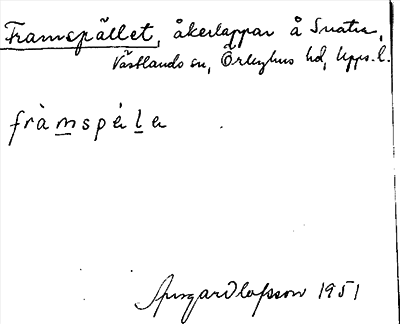 Framspället, åkerlappar å Snatra,
Västlands sn, Örbyhus hd, Upps. l.
fràmspéla
Olofsson 1951